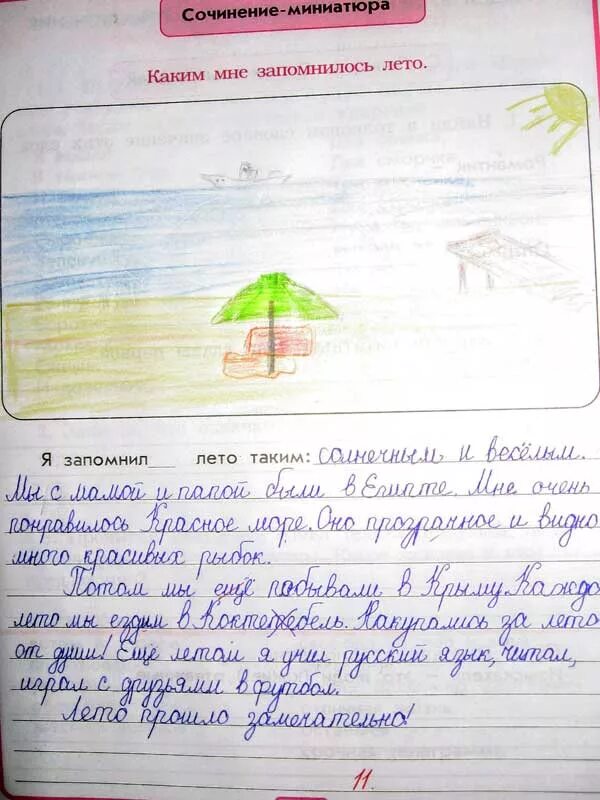 Сочинение-миниатюра
Каким мне запомнилось лето.
Я запомнил__ лето таким: солнечным и весёлым.
Мы с мамой и папой были в Египте. Мне очень
понравилось Красное море. Оно прозрачное и видно
много красивых рыбок.
Потом мы ещё побывали в Крыму. Каждо
лето мы ездим в Коктебель. Накупались за лето
от души! Ещё летом я учил русский язык, читал,
играл с друзьями в футбол.
Лето прошло замечательно!
11.